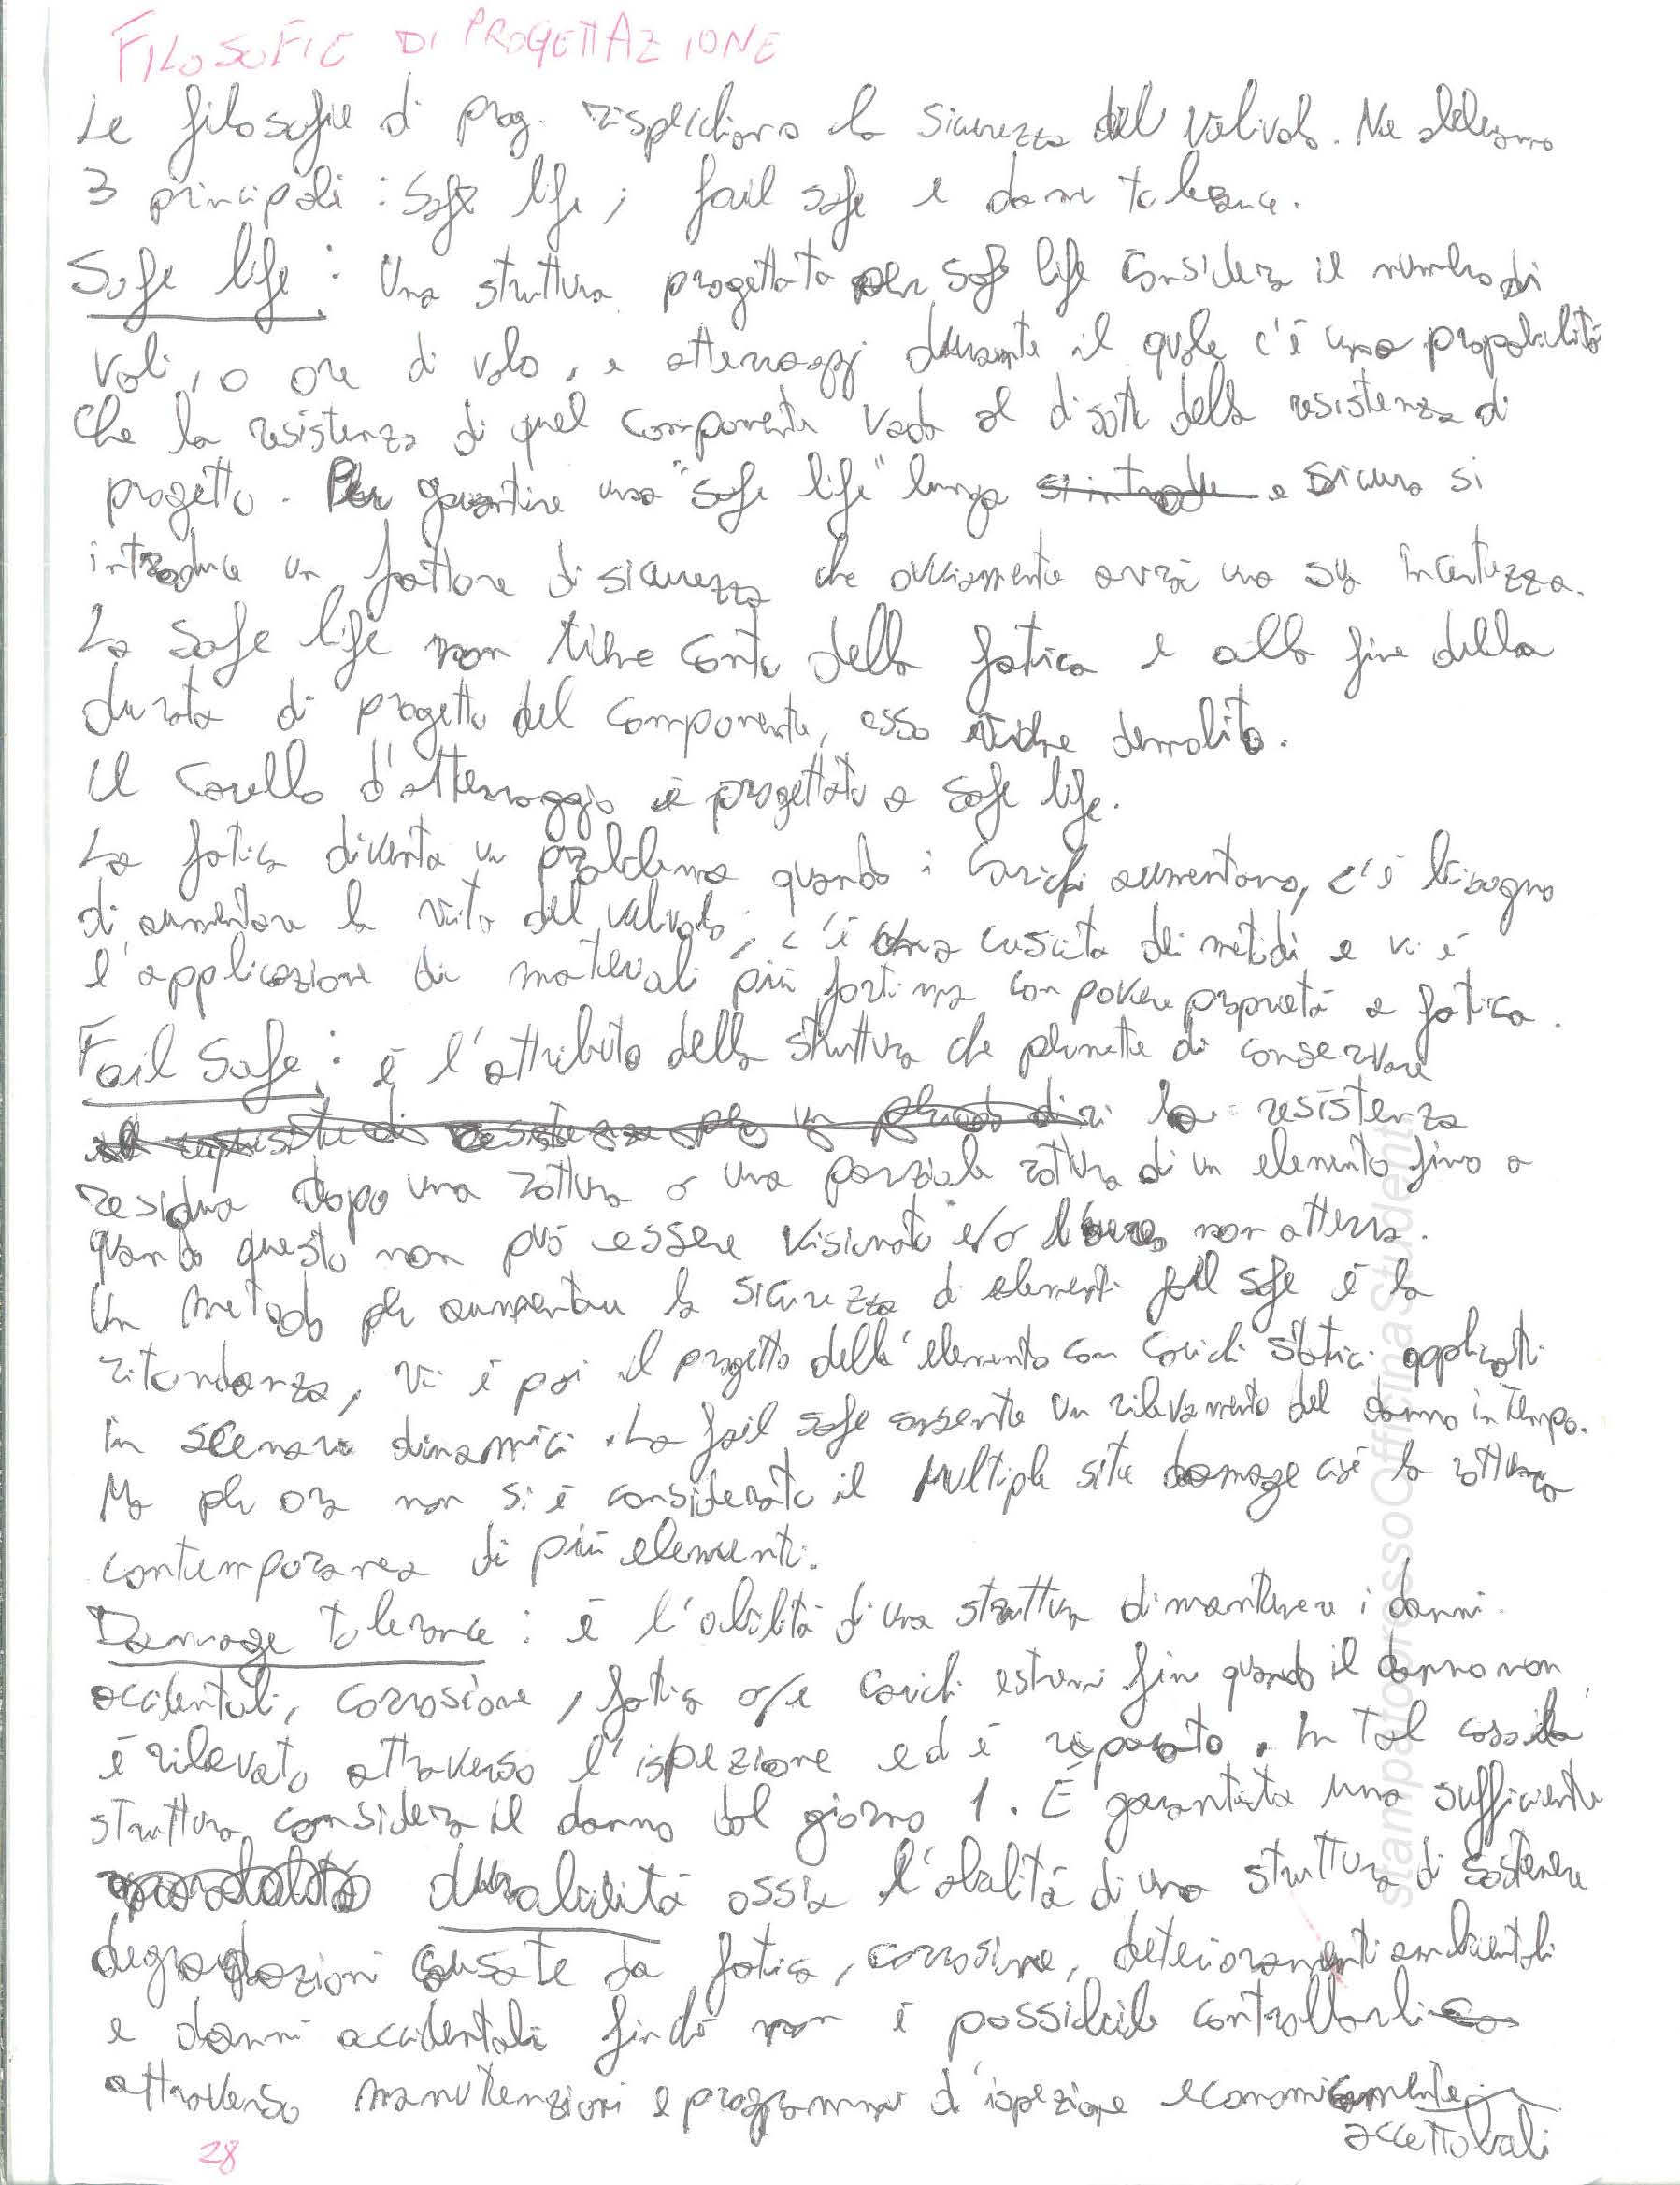 FILOSOFIE DI PROGETTAZIONE
Le filosofie di prog. rispecchiano la sicurezza del velivolo. Ne abbiamo
3 principali : Safe life ; fail safe e dam tolerance.
Safe life : Una struttura progettata per safe life considera il numero di
voli, o ore di volo, e atterraggi durante il quale c'è una propobabilità
che la resistenza di quel componente vada al di sotto della resistenza di
progetto. Per garantire una "safe life" lunga e sicura si
introduce un fattore di sicurezza che ovviamente avrà una sua incertezza.
La safe life non tiene conto della fatica e alla fine della
durata di progetto del componente, esso viene demolito.
Il carello d'atterraggio è progettato a safe life.
La fatica diventa un problema quando i carichi aumentano, c'è bisogno
di aumentare la vita del velivolo, c'è una cuscita dei metodi e vi è
l'applicazione di materiali più forti ma con povere proprietà a fatica.
Fail Safe : è l'attributo della struttura che permette di conservare
la resistenza
residua dopo una rottura o una parziale rottura di un elemento fino a
quando questo non può essere visionato e/o non atterra.
Un metodo per aumentare la sicurezza di elementi fail safe è la
ritondanza, vi è poi il progetto della elemento con carichi statici applicati
in scenari dinamici. La fail safe consente un rilevamento del danno in tempo.
Ma per ora non si è considerato il Multiple site damage cioè la rottura
contemporanea di più elementi.
Damage tolerance : è l'abilità di una struttura di mantenere i danni
accidentali, corrosione, fatica o/e carichi estremi fin quando il danno non
è rilevato attraverso l'ispezione ed è riparato. In tal caso la
struttura considera il danno dal giorno 1. È garantita una sufficiente
durabilità ossia l'abilità di una struttura di sostenere
degradazioni causate da fatica, corrosione, deterioramenti ambientali
e danni accidentali finché non è possibile controllarli
attraverso manutenzioni e programmi d'ispezione economicamente
accettabili
28
stampato presso Officina Studenti